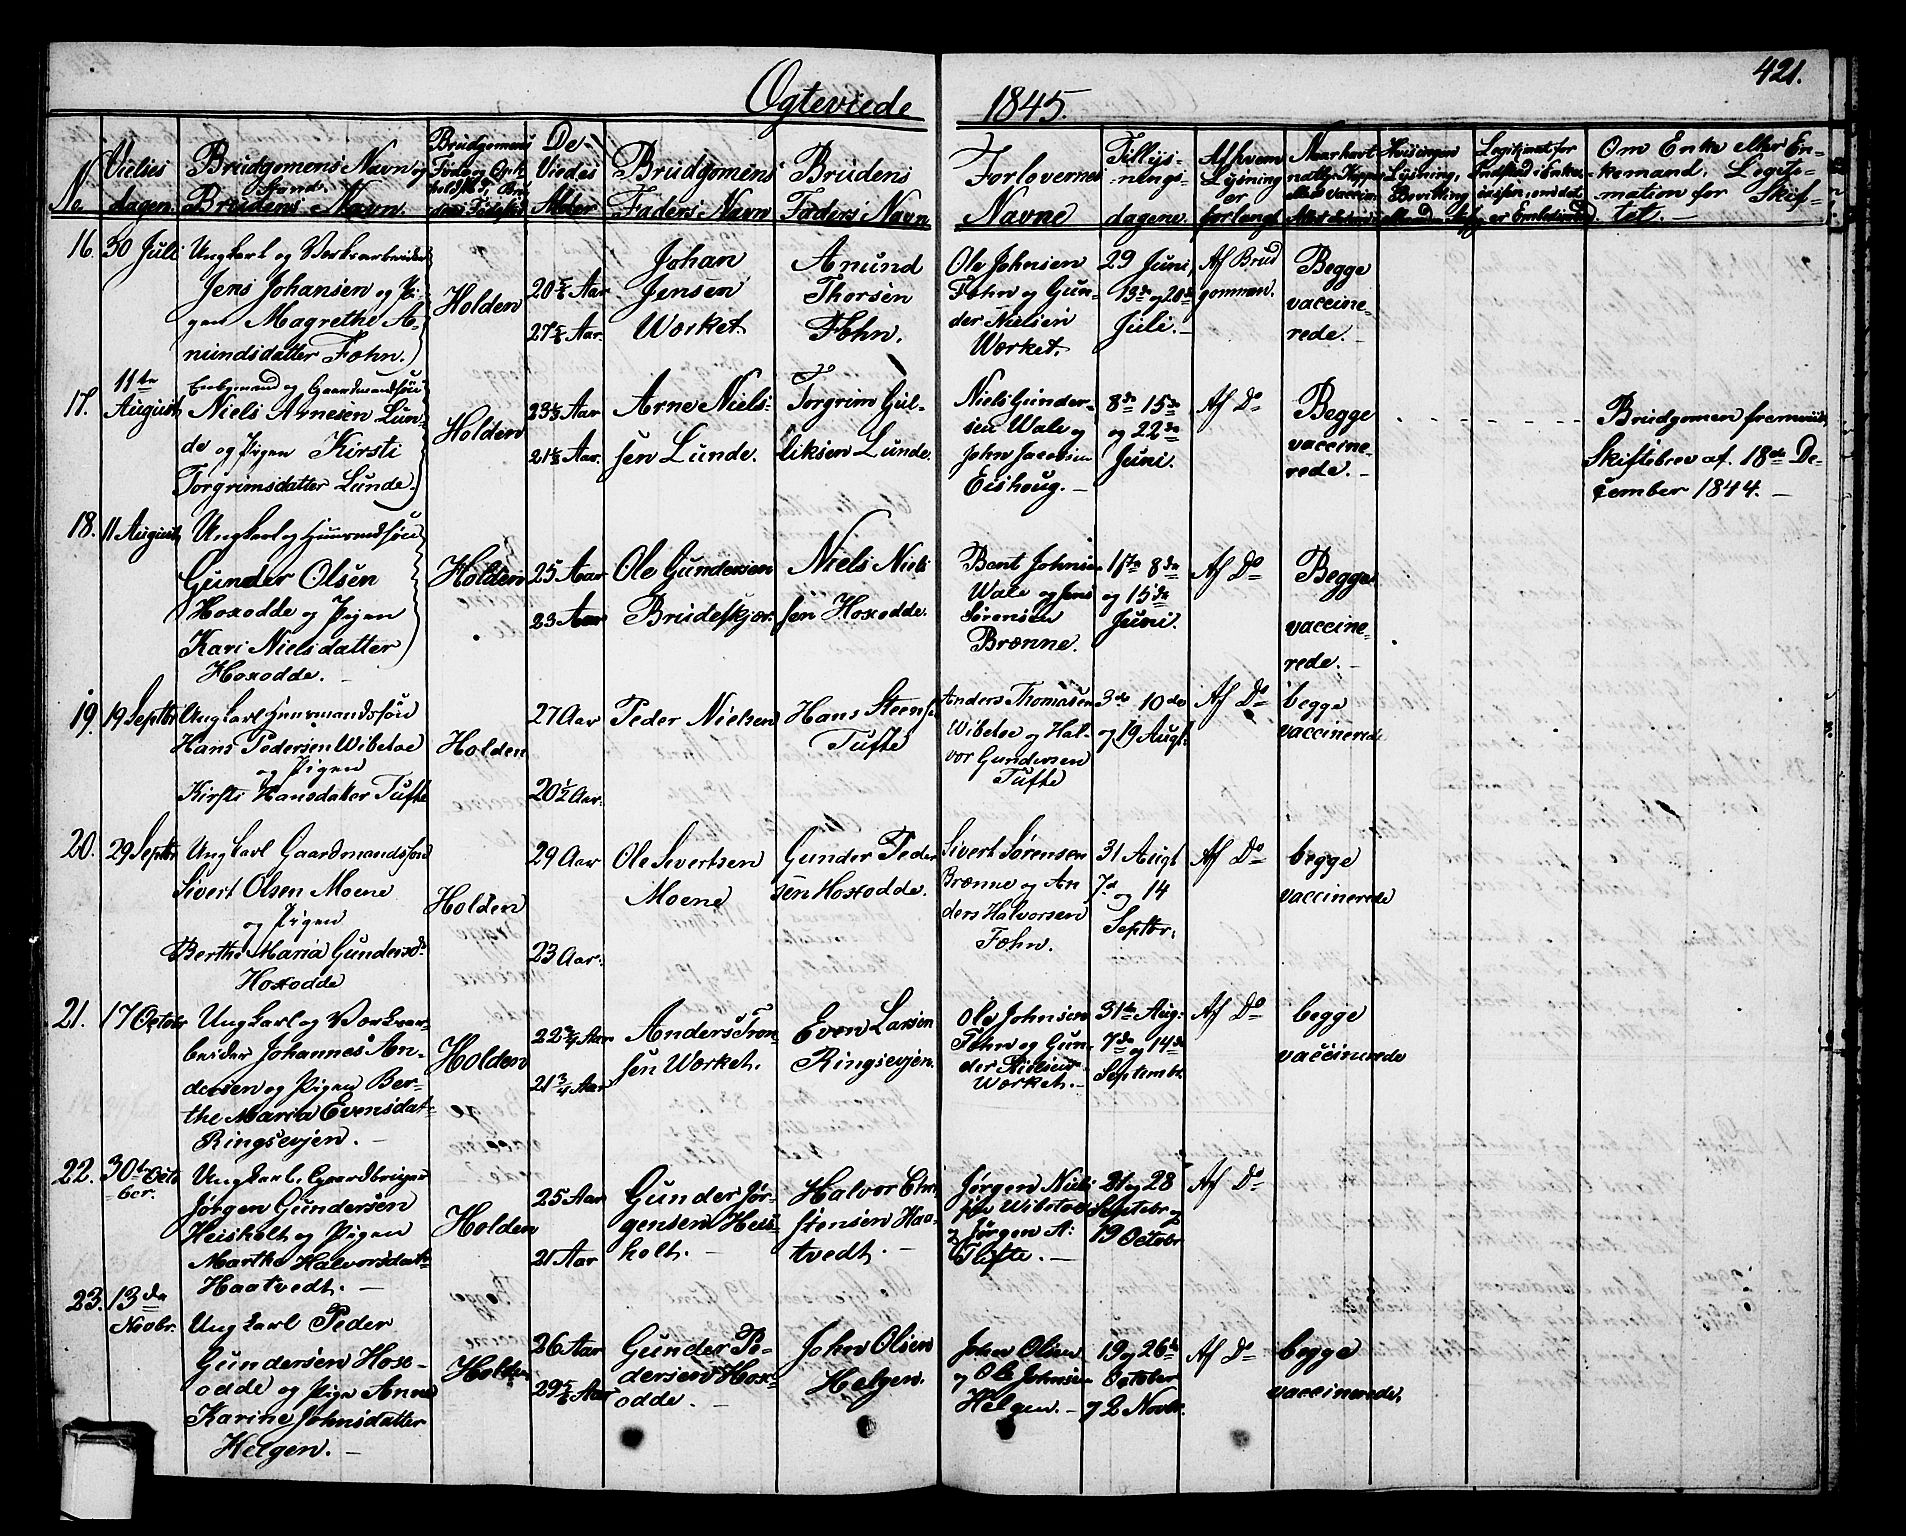 421.
Ogteviede 1845.
No
Vielses dagen.
Brudgomens Navn og Stand. Brudens Navn.
BrudgomensFøde og
De Viedes Alder
Brudgomens Faders Navn
Brudens Faders Navn
Forlovernes Navne
Tillysningsdagene.
Af hvem Lysning er forlangt
Om Enke eller Enkemand. Legitimation for Skiftet. —
16. 30 Juli
Ungkarl og Verksarbeider
Jens Johansen og Pi-
gen Magrethe A-
mundsdatter Fæhn.
Holden
20 5/6 Aar
27 5/6 Aar.
Johan
Jensen
Værket
Amund
Thorsen
Fæhn.
Ole Johnsen
Fæhn og Gun-
der Nielsen
Værket.
29 Juni,
13de og 20de
Juli. —
Af Brud
gommen.
Begge
vaccine-
rede. —
17. 11te August
Enkemand og Gaardmandssøn
Niels Arnesen Lun-
de og Pigen Kirsti
Torgrimsdatter Lunde.
Holden
Aar
Aar.
Arne Niel-
sen Lunde.
Torgrim Gul-
liksen Lunde.
Niels Gunder-
sen Wale og
John Jacobsen
Eishoug. —
8de 15de
og 22de
Juni.
Af Do
Begge
vaccine-
rede. —
Brudgomen fremviiste
Skiftebrev af 18de De-
cember 1844. —
18. 11 August
Ungkarl og Huusmandssøn
Gunder Olsen
Hoxodde og Pigen
Kari Nielsdatter
Hoxodde. —
Holden
25 Aar
23 Aar
Ole Gundersen
Brudeskjær.
Niels Niel-
sen Hoxodde.
Bent Johnsen
Wale og Jens
Sørensen
Brænne.
1ste 8de
og 15de
Juni.
Af Do
Begge
vaccine-
rede. —
19. 19 Septbr
Ungkarl Huusmandssøn
Hans Pedersen Wibetoe
og Pigen
Kirsti Hansdatter Tufte
Holden
27 Aar
20 1/2 Aar.
Peder Nielsen
Hans Steens.
Tufte
Anders Thomasen
Wibetoe og Hal-
vor Gundersen
Tufte
3de 10de
og 19 Augt.
Af Do
begge
vaccinerede
20. 29 Septbr
Ungkarl Gaardmandssøn
Sivert Olsen Moene
og Pigen
Berthe Maria Gundersd.
Hoxodde
Holden
29 Aar
23 Aar.
Ole Sivertsen
Moene
Gunder Peder
sen Hoxodde.
Sivert Sørensen
Brænne og An
ders Halvorsen
Fæhn.
31 Augt
7de og 14
Septbr.
Af Do
begge
vaccinerede
21. 17 Octobr
Ungkarl og Værksar-
beider Johannes An-
dersen og Pigen Ber-
the Maria Evensdat-
Ringsevjen. —
Holden
22 3/4 Aar
21 3/4 Aar
Anders Tron-
sen Værket.
Even Larsen
Ringsevjen.
Ole Johnsen
Fæhn og Gun-
der Nielsen
Værket.
31te Aug.
7de og 14de
Septembr.
Af Do
begge
vaccinerede
22. 30te Octo
ber.
Ungkarl, Gaardbruger
Jørgen Gundersen
Heisholt og Pigen
Marthe Halvorsdatt.
Haatvedt. —
Holden
25 Aar
21 Aar
Gunder Jør-
gensen Heis-
holt. —
Halvor Chri
stensen Haa-
tvedt. —
Jørgen Niel-
sen Wibetoe
og Jørgen A:
Tufte. —
21 og 28
Septebr og
19 Octobr
Af Do
23. 13de
Novbr.
Ungkarl Peder
Gundersen Hox-
odde og Pige Anne
Karine Johnsdatter
Helgen. —
Holden
26 Aar
29 5/6 Aar
Gunder Pe-
dersen Hox-
odde. —
John Olsen
Helgen.
John Olsen
og Ole Johnsen
Helgen. —
19 og 26de
October
og 2 Novbr.
Af Do
begge
vaccinerede.